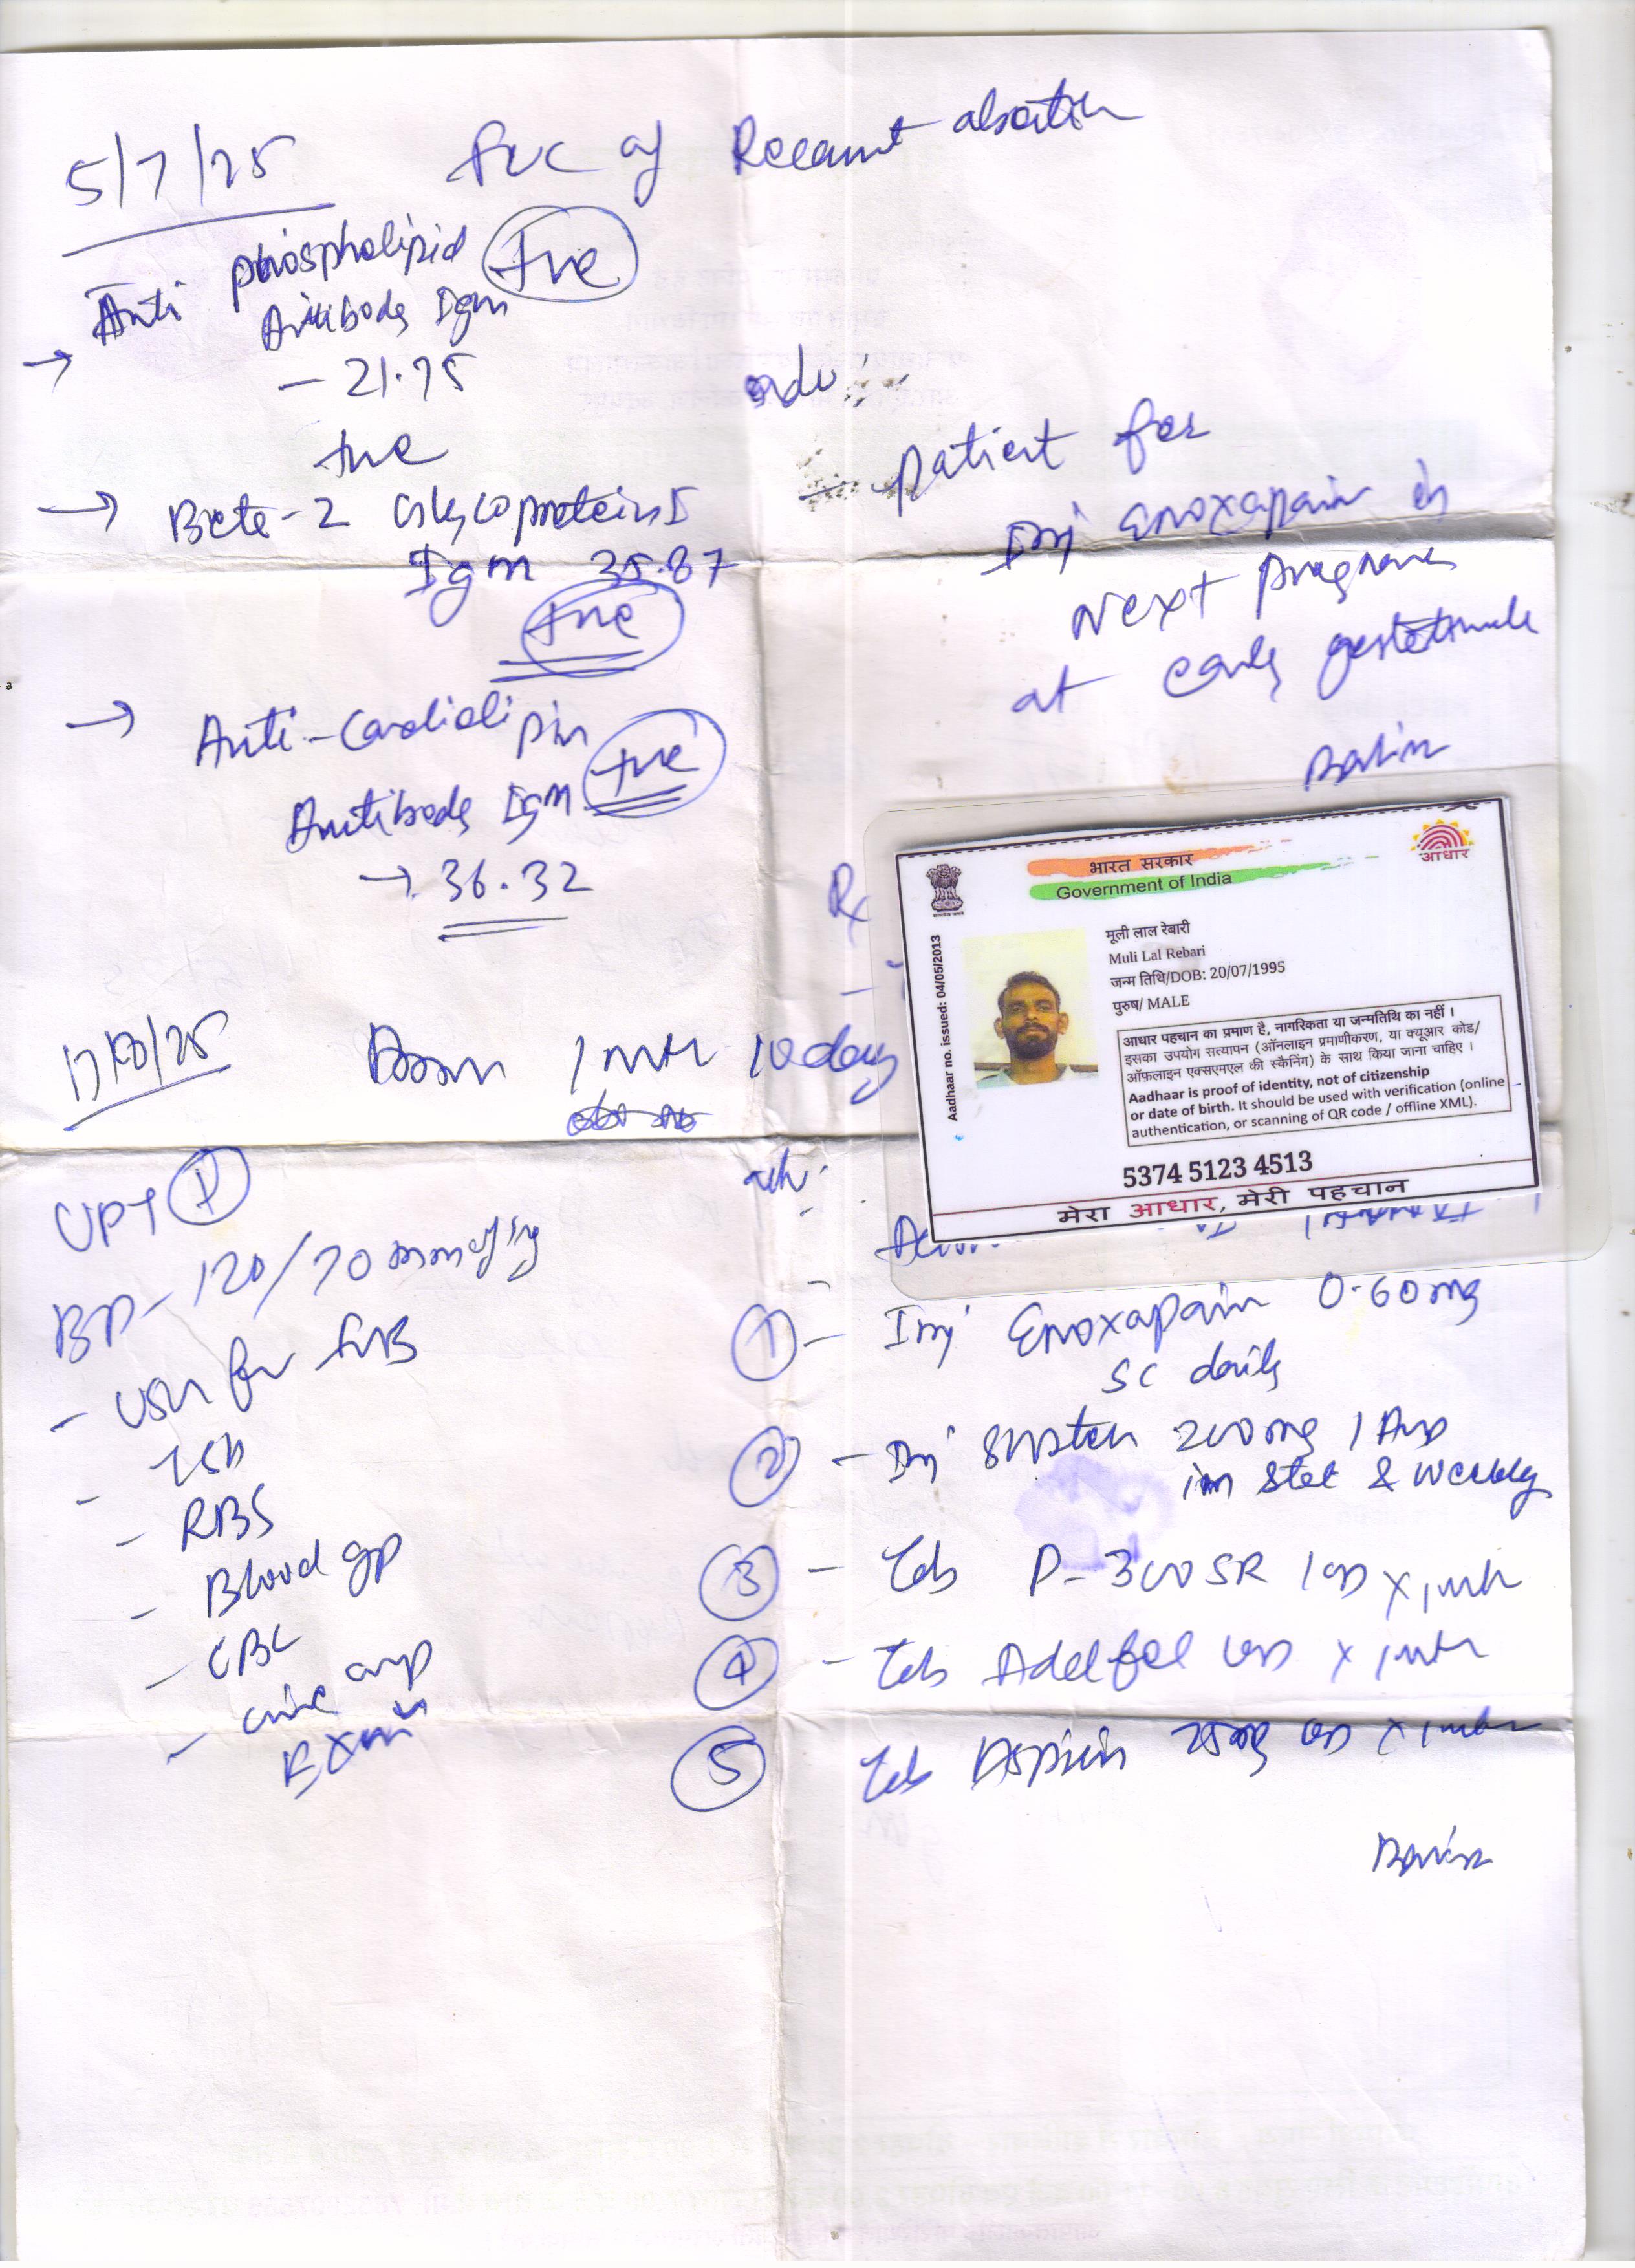 5/7/25
of Recurrent abortion
Anti phospholipid
Antibody Igm
+ve
→
- 21.75
+ve
→ Beta-2 Glycoprotein I
Igm 35.87
+ve
→ Anti-Cardiolipin
Antibody Igm
+ve
→ 36.32
adv:
- patient for
Inj Enoxapain in
Next pregnancy
at early gestational
Rx
भारत सरकार
Government of India
आधार
Aadhaar no. issued: 04/05/2013
मूली लाल रेबारी
Muli Lal Rebari
जन्म तिथि/DOB: 20/07/1995
पुरुष/ MALE
आधार पहचान का प्रमाण है, नागरिकता या जन्मतिथि का नहीं ।
इसका उपयोग सत्यापन (ऑनलाइन प्रमाणीकरण, या क्यूआर कोड/
ऑफ़लाइन एक्सएमएल की स्कैनिंग) के साथ किया जाना चाहिए ।
Aadhaar is proof of identity, not of citizenship
or date of birth. It should be used with verification (online
authentication, or scanning of QR code / offline XML).
5374 5123 4513
मेरा आधार, मेरी पहचान
1 mth 10 day
UPT
BP - 120/70 mmofHg
- USG for
- TSH
- RBS
- Blood gp
- CBC
- urine
adv:
① - Inj Enoxapain 0.60mg
SC daily
② - Inj Susten 200mg 1 Amp
im Stat & weekly
③ - Tab D-300SR 1 OD x 1 mth
④ - Tab OD x 1 mth
⑤ Tab Aspirin 75mg OD x 1 mth